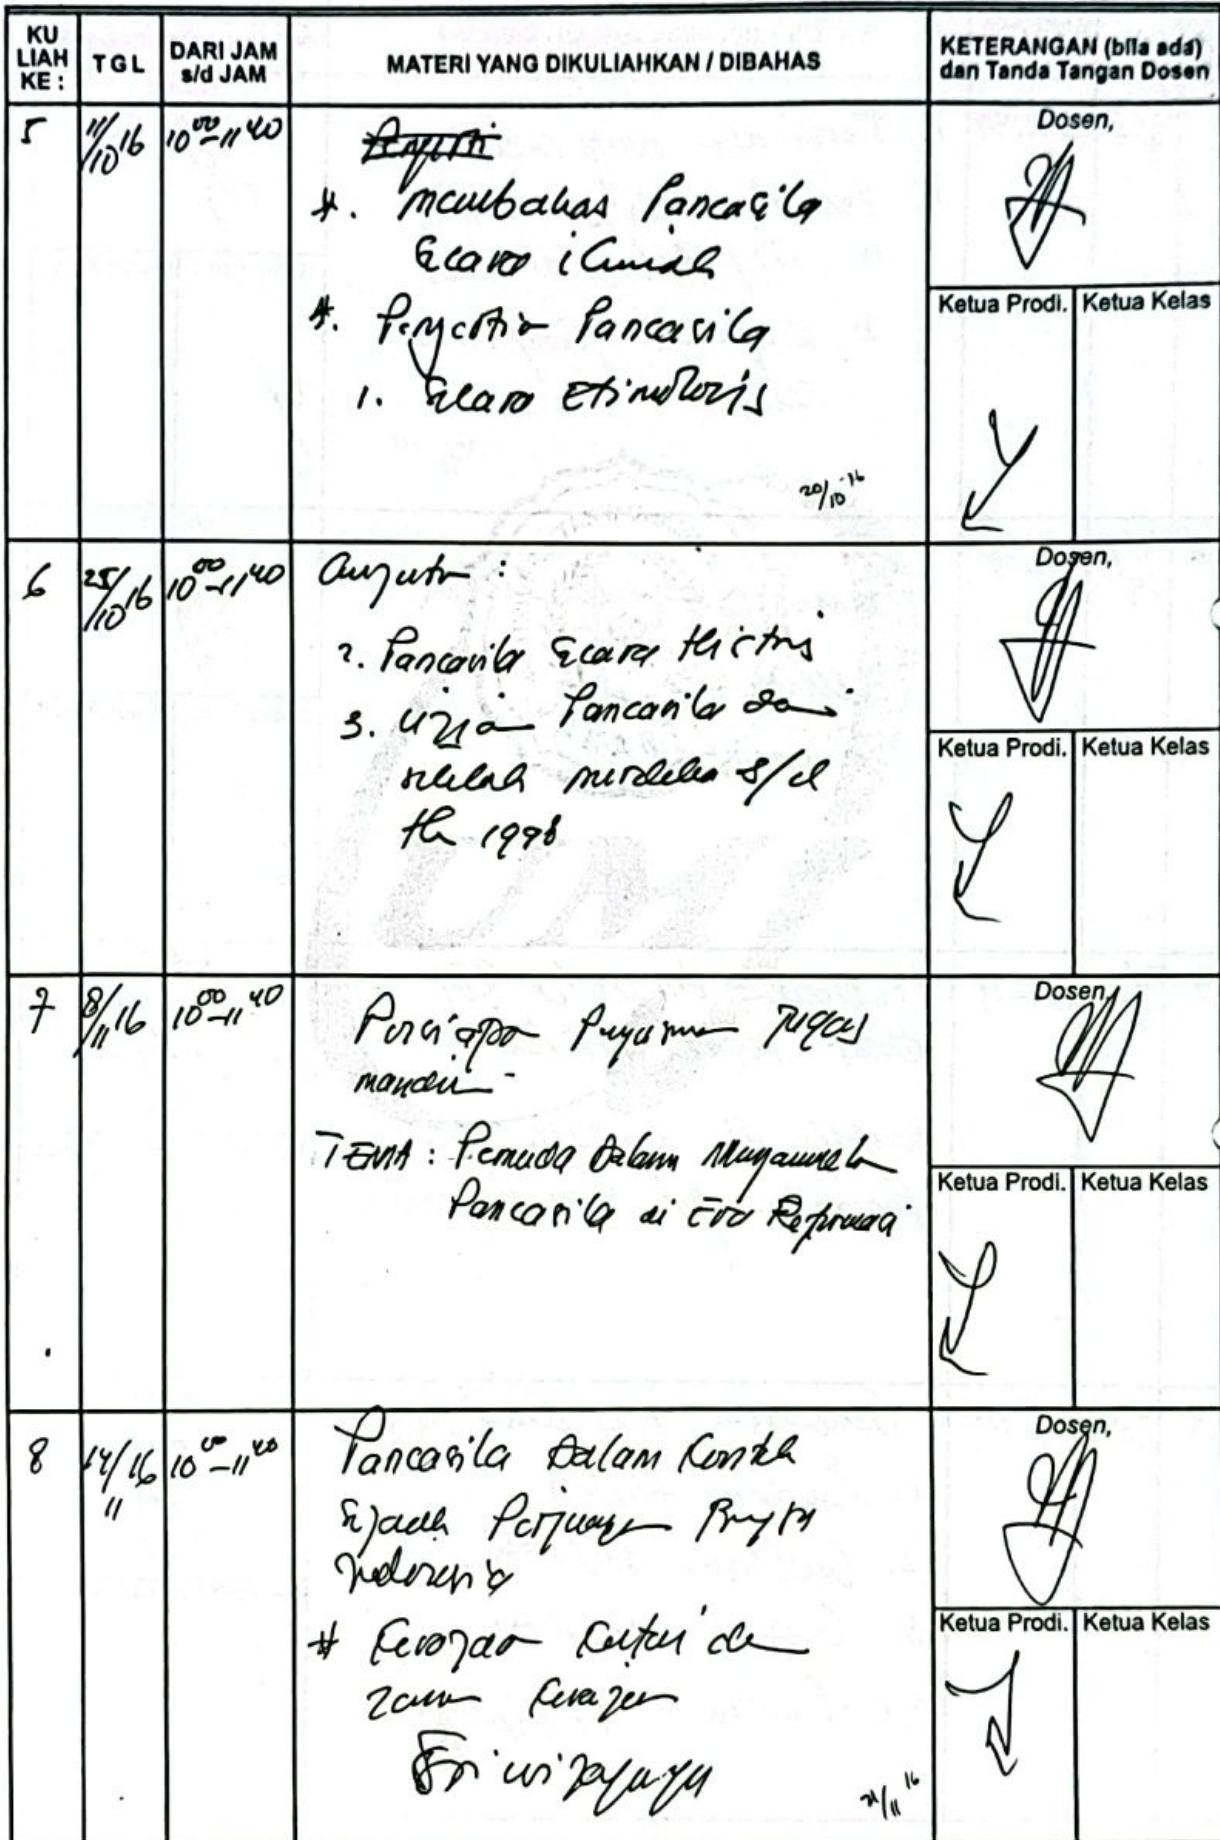 KU LIAH KE : TGL DARI JAM s/d JAM MATERI YANG DIKULIAHKAN / DIBAHAS KETERANGAN (bila ada) dan Tanda Tangan Dosen
5 11/10 16 10 00 - 11 40
Dosen,
*. membahas Pancasila
secara ilmiah
*. Pengertian Pancasila
1. secara Etimologis
20/10 16
Ketua Prodi. Ketua Kelas
6 25/10 16 10 00 - 11 40
Dosen,
2. Pancasila secara Historis
3. Pancasila
setelah merdeka s/d
th 1998
Ketua Prodi. Ketua Kelas
7 8/11 16 10 00 - 11 40
Dosen,
Persiapan Tugas
mandiri
TEMA : Pemuda Dalam
Pancasila di Era Reformasi
Ketua Prodi. Ketua Kelas
8 14/11 16 10 00 - 11 40
Dosen,
Pancasila Dalam Konteks
Sejarah Perjuangan Bangsa
Indonesia
# Kerajaan Kutai dan
zaman Kerajaan
Sriwijaya
21/11 16
Ketua Prodi. Ketua Kelas